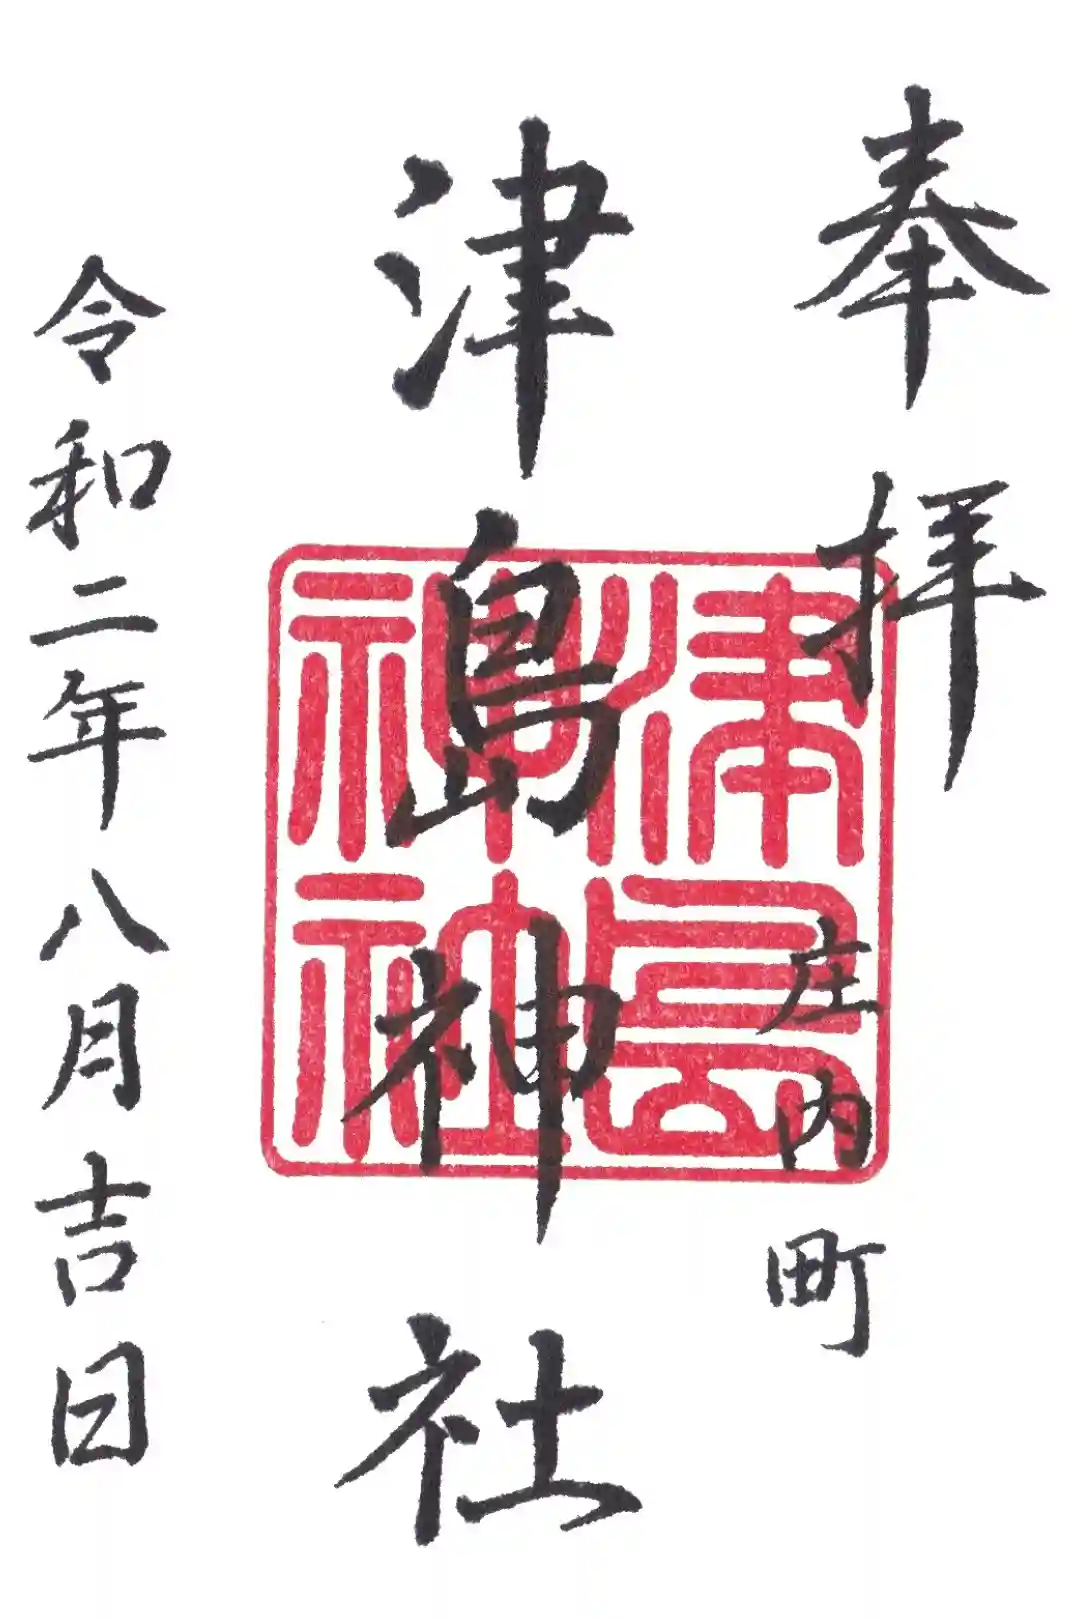 奉拝
庄内町
津島神社
津島
神社
令和二年八月吉日